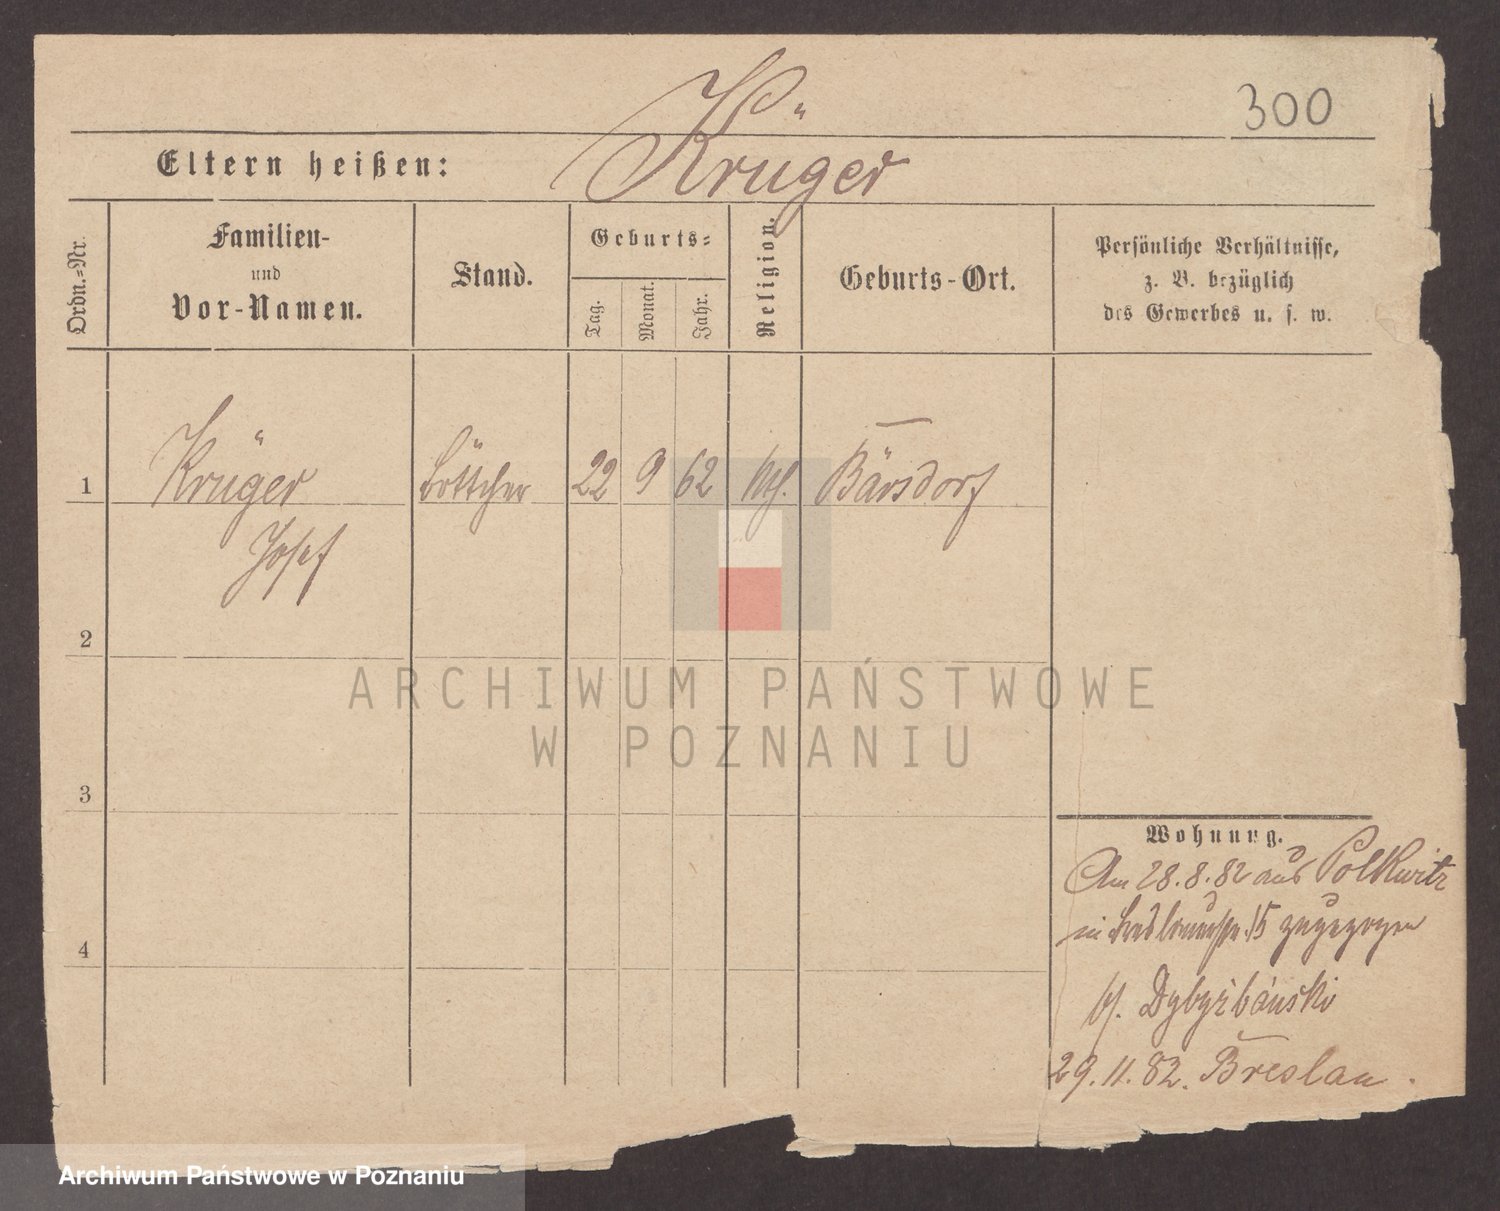 300
Krüger
Eltern heißen:
Ordn.=Nr.
Familien-
und
Vor-Namen.
Stand.
Geburts=
Tag.
Monat.
Jahr.
Religion.
Geburts-Ort.
Persönliche Verhältnisse,
z. B. bezüglich
des Gewerbes u. s. w.
1
Krüger
Josef
Böttcher
22
9
62
kth.
Bärsdorf
2
ARCHIWUM PAŃSTWOWE
W POZNANIU
3
4
Wohnung.
Am 28.8.82 aus Polkwitz
in 15 zugezogen
29.11.82. Breslau.
Archiwum Państwowe w Poznaniu